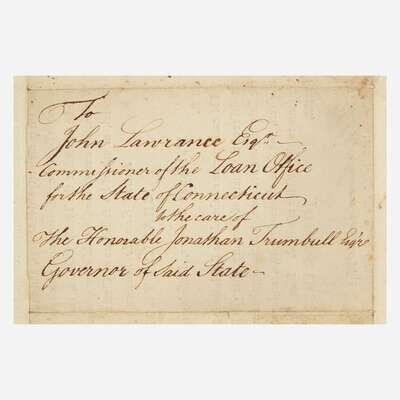 To
John Lawrance Esqr.
Commissioner of the Loan Office
for the State of Connecticut
to the care of
The Honorable Jonathan Trumbull Esqre
Governor of said State